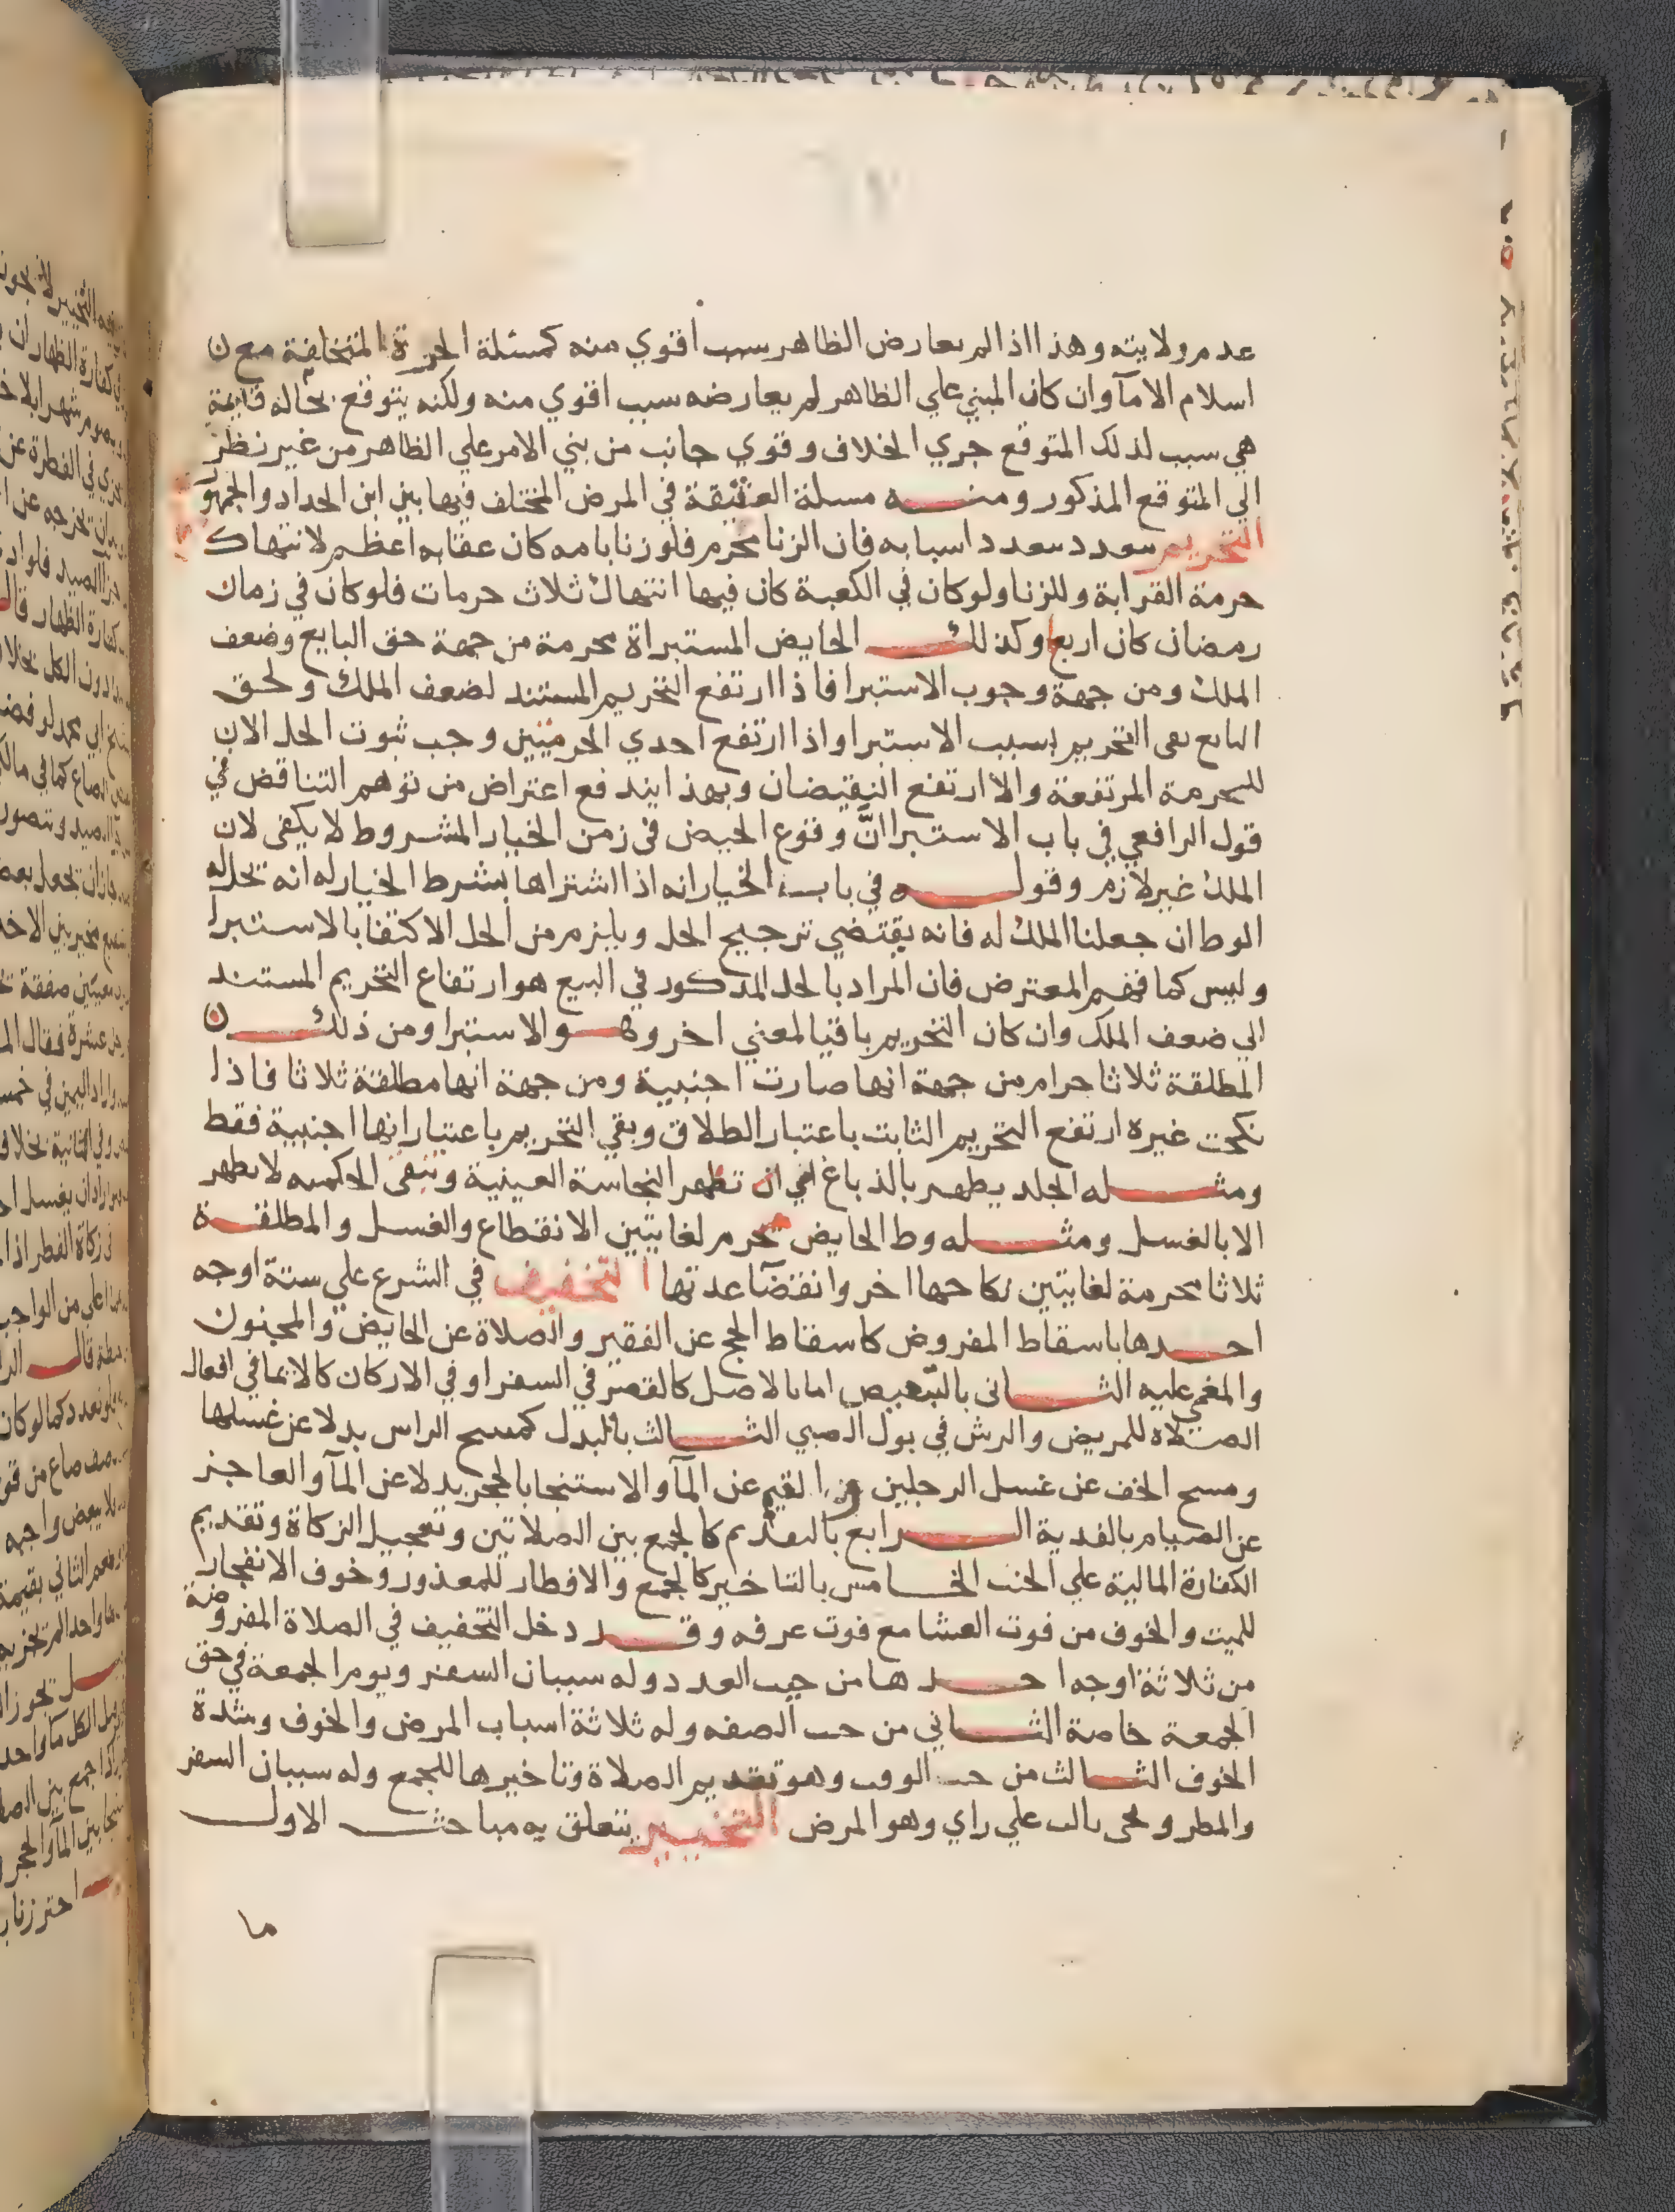 عدم ولايته وهذا اذا لم يعارض الظاهر سبب اقوي منه كمسئلة الحرة المتخلفة مع
اسلام الامآ وان كان المبني علي الظاهر لم يعارضه سبب اقوي منه ولكنه يتوقع بحاله قايمة
هي سبب لذلك المتوقع جري الخلاف وقوي جانب من بني الامر علي الظاهر من غير نظر
الي المتوقع المذكور ومنه مسلة العتيقة في المرض المختلف فيها بين ابن الحداد والجمهور
التحريم يتعدد بتعدد اسبابه فان الزنا محرم فلو زنا بامه كان عقابه اعظم لانتهاك
حرمة القرابة وللزنا ولو كان في الكعبة كان فيها انتهاك ثلاث حرمات فلو كان في زمان
رمضان كان اربعا وكذلك الحايض المستبراة محرمة من جهة حق البايع وضعف
الملك ومن جهة وجوب الاستبرا فاذا ارتفع التحريم المستند لضعف الملك ولحق
البايع بقي التحريم بسبب الاستبرا واذا ارتفع احدي الحرمتين وجب ثبوت الحل الان
للحرمة المرتفعة والا ارتفع النقيضان وبهذا يندفع اعتراض من توهم التناقض في
قول الرافعي في باب الاستبرا انّ وقوع الحيض في زمن الخيار المشروط لا يكفي لان
الملك غير لازم وقوله في باب الخيار انه اذا اشتراها بشرط الخيار له انه تحل له
الوط ان جعلنا الملك له فانه يقتضي ترجيح الحل ويلزم من الحل الاكتفا بالاستبرا
وليس كما فهم المعترض فان المراد بالحل المذكور في البيع هو ارتفاع التحريم المستند
الي ضعف الملك وان كان التحريم باقيا لمعني اخر وهو الاستبرا ومن ذلك
المطلقة ثلاثا حرام من جهة انها صارت اجنبية ومن جهة انها مطلقة ثلاثا فاذا
نكحت غيره ارتفع التحريم الثابت باعتبار الطلاق وبقي التحريم باعتبار انها اجنبية فقط
ومثله الجلد يطهر بالدباغ تطهر النجاسة العينية وتبقي الحكميه لا تطهر
الا بالغسل ومثله وط الحايض محرم لغايتين الانقطاع والغسل والمطلقة
ثلاثا محرمة لغايتين نكاحها اخر وانقضآ عدتها التخفيف في الشرع علي ستة اوجه
احدها باسقاط المفروض كاسقاط الحج عن الفقير والصلاة عن الحايض والمجنون
والمغمي عليه الثاني بالتبعيض اما بالاصل كالقصر في السفر او في الاركان كالايما في افعال
الصلاة للمريض والرش في بول الصبي الثالث بالبدل كمسح الراس بدلا عن غسلها
ومسح الخف عن غسل الرجلين عن المآ والاستنجا بالحجر بدلا عن المآ والعاجز
عن الصيام بالفدية الرابع بالتقديم كالجمع بين الصلاتين وتعجيل الزكاة وتقديم
الكفارة المالية علي الحنث الخامس بالتاخير كالجمع والافطار للمعذور وخوف الانفجار
للميت والخوف من فوت العشا مع فوت عرفه وقد دخل التخفيف في الصلاة المفروضة
من ثلاثة اوجه احدها من حيث العدد وله سببان السفر ويوم الجمعة في حق
الجمعة خاصة الثاني من حيث الصفه وله ثلاثة اسباب المرض والخوف وشدة
الخوف الثالث من حيث الوقت وهو تقديم الصلاة وتاخيرها للجمع وله سببان السفر
والمطر ثالث علي راي وهو المرض التخيير يتعلق به مباحث الاول
ما